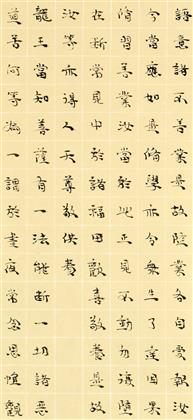 語意諸不善業是故隨業各自受報汝
今當應如是修學亦令衆生了達因果
修習善業汝當於此正見不動勿復墮
在斷常見中於諸福田歡喜敬養是故
汝等亦得人天尊敬供養
龍王當知菩薩有一法能斷一切諸惡
道苦何等為一謂於晝夜常念思惟觀